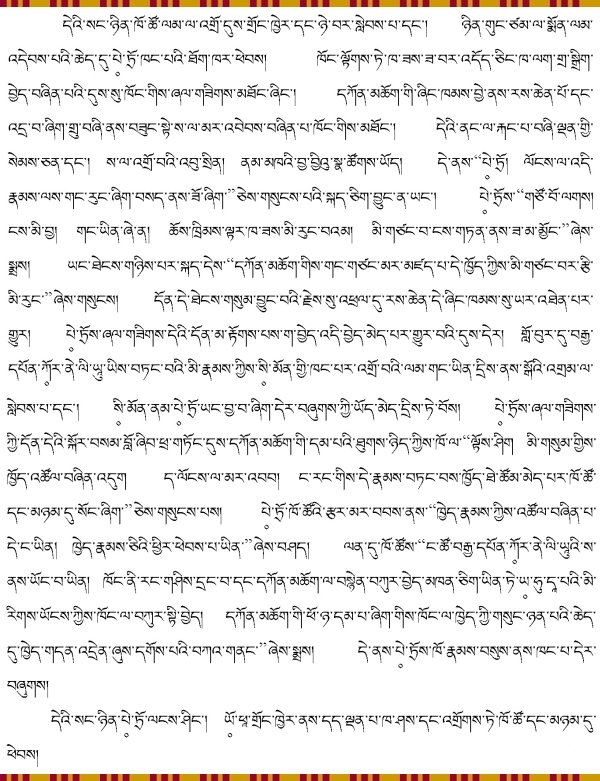 དེའི་སང་ཉིན་ཁོ་ཚོ་ལམ་ལ་འགྲོ་དུས་གྲོང་ཁྱེར་དང་ཉེ་བར་སླེབས་པ་དང༌། ཉིན་གུང་ཙམ་ལ་སྨོན་ལམ་
འདེབས་པའི་ཆེད་དུ་པེ༹་ཏྲོ་ཁང་པའི་ཐོག་ཁར་ཕེབས། ཁོང་ལྟོགས་ཏེ་ཁ་ཟས་ཟ་བར་འདོད་ཅིང་ཁ་ལག་གྲ་སྒྲིག་
བྱེད་བཞིན་པའི་དུས་སུ་ཁོང་གིས་ཞལ་གཟིགས་མཐོང་ཞིང༌། དཀོན་མཆོག་གི་ཞིང་ཁམས་ཕྱེ་ནས་རས་ཆེན་པོ་དང་
འདྲ་བ་ཞིག་གྲུ་བཞི་ནས་བཟུང་སྟེ་ས་ལ་མར་འབེབས་བཞིན་པ་ཁོང་གིས་མཐོང༌། དེའི་ནང་ལ་རྐང་པ་བཞི་ལྡན་གྱི་
སེམས་ཅན་དང༌། ས་ལ་འགྲོ་བའི་འབུ་སྲིན། ནམ་མཁའི་བྱ་བྱིའུ་སྣ་ཚོགས་ཡོད། དེ་ནས་“པེ༹་ཏྲོ། ལོངས་ལ་འདི་
རྣམས་ལས་གང་རུང་ཞིག་བསད་ནས་ཟོ་ཞིག་”ཅེས་གསུངས་པའི་སྐད་ཅིག་བྱུང་ན་ཡང༌། པེ༹་ཏྲོས་“གཙོ་བོ་ལགས།
ངས་མི་བྱ། གང་ཡིན་ཞེ་ན། ཆོས་ཁྲིམས་ལྟར་ཁ་ཟས་མི་རུང་བའམ། མི་གཙང་བ་ངས་གཏན་ནས་ཟ་མ་མྱོང་”ཞེས་
སྨྲས། ཡང་ཐེངས་གཉིས་པར་སྐད་དེས་“དཀོན་མཆོག་གིས་གང་གཙང་མར་མཛད་པ་དེ་ཁྱོད་ཀྱིས་མི་གཙང་བར་རྩི་
མི་རུང་”ཞེས་གསུངས། དོན་དེ་ཐེངས་གསུམ་བྱུང་བའི་རྗེས་སུ་འཕྲལ་དུ་རས་ཆེན་དེ་ཞིང་ཁམས་སུ་ཡར་འཐེན་པར་
གྱུར། པེ༹་ཏྲོས་ཞལ་གཟིགས་དེའི་དོན་མ་རྟོགས་པས་ག་བྱེད་འདི་བྱེད་མེད་པར་གྱུར་བའི་དུས་དེར། གློ་བུར་དུ་བརྒྱ་
དཔོན་ཀོ༹ར་ནེ་ལི་ཡཱུ་ཡིས་བཏང་བའི་མི་རྣམས་ཀྱིས་སི༹་མོན་གྱི་ཁང་པར་འགྲོ་བའི་ལམ་གང་ཡིན་དྲིས་ནས་སྒོའི་འགྲམ་ལ་
སླེབས་པ་དང༌། སི༹་མོན་ནམ་པེ༹་ཏྲོ་ཡང་བྱ་བ་ཞིག་དེར་བཞུགས་ཀྱི་ཡོད་མེད་དྲིས་ཏེ་བོས། པེ༹་ཏྲོས་ཞལ་གཟིགས་
ཀྱི་དོན་དེའི་སྐོར་བསམ་བློ་ཞིབ་ཕྲ་གཏོང་དུས་དཀོན་མཆོག་གི་དམ་པའི་ཐུགས་ཉིད་ཀྱིས་ཁོ་ལ་“ལྟོས་ཤིག མི་གསུམ་གྱིས་
ཁྱོད་འཚོལ་བཞིན་འདུག ད་ལོངས་ལ་མར་འབབ། ང་རང་གིས་དེ་རྣམས་བཏང་བས་ཁྱོད་ཐེ་ཚོམ་མེད་པར་ཁོ་ཚོ་
དང་མཉམ་དུ་སོང་ཞིག་”ཅེས་གསུངས་པས། པེ༹་ཏྲོ་ཁོ་ཚོའི་རྩར་མར་བབས་ནས་“ཁྱེད་རྣམས་ཀྱིས་འཚོལ་བཞིན་པ་
དེ་ང་ཡིན། ཁྱེད་རྣམས་ཅིའི་ཕྱིར་ཕེབས་པ་ཡིན་”ཞེས་བཤད། ལན་དུ་ཁོ་ཚོས་“ང་ཚོ་བརྒྱ་དཔོན་ཀོ༹ར་ནེ་ལི་ཡཱུའི་ས་
ནས་ཡོང་བ་ཡིན། ཁོང་ནི་རང་གཤིས་དྲང་བ་དང་དཀོན་མཆོག་ལ་བསྙེན་བཀུར་བྱེད་མཁན་ཅིག་ཡིན་ཏེ་ཡ༹་ཧུ་དཱ་པའི་མི་
རིགས་ཡོངས་ཀྱིས་ཁོང་ལ་བཀུར་སྟི་བྱེད། དཀོན་མཆོག་གི་ཕོ་ཉ་དམ་པ་ཞིག་གིས་ཁོང་ལ་ཁྱེད་ཀྱི་གསུང་ཉན་པའི་ཆེད་
དུ་ཁྱེད་གདན་འདྲེན་ཞུས་དགོས་པའི་བཀའ་གནང་”ཞེས་སྨྲས། དེ་ནས་པེ༹་ཏྲོས་ཁོ་རྣམས་བསུས་ནས་ཁང་པ་དེར་
བཞུགས།
དེའི་སང་ཉིན་པེ༹་ཏྲོ་ལངས་ཤིང༌། ཡོ༹་ཕཱ་གྲོང་ཁྱེར་ནས་དད་ལྡན་པ་ཁ་ཤས་དང་འགྲོགས་ཏེ་ཁོ་ཚོ་དང་མཉམ་དུ་
ཕེབས།